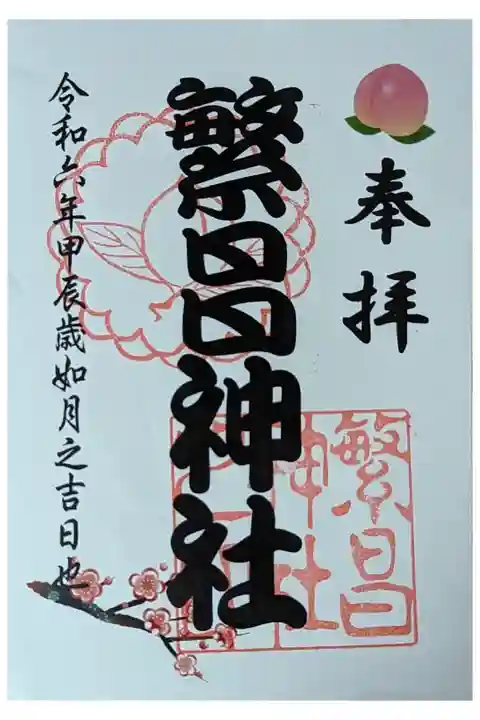 奉拝
繁昌神社
令和六年甲辰歳如月之吉日也
繁昌
神社